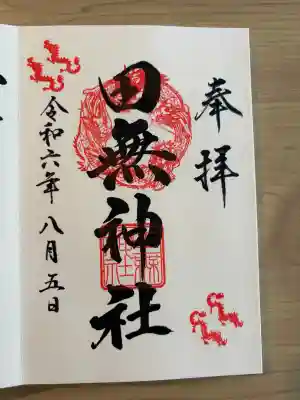 奉拝
田無神社
令和六年八月五日